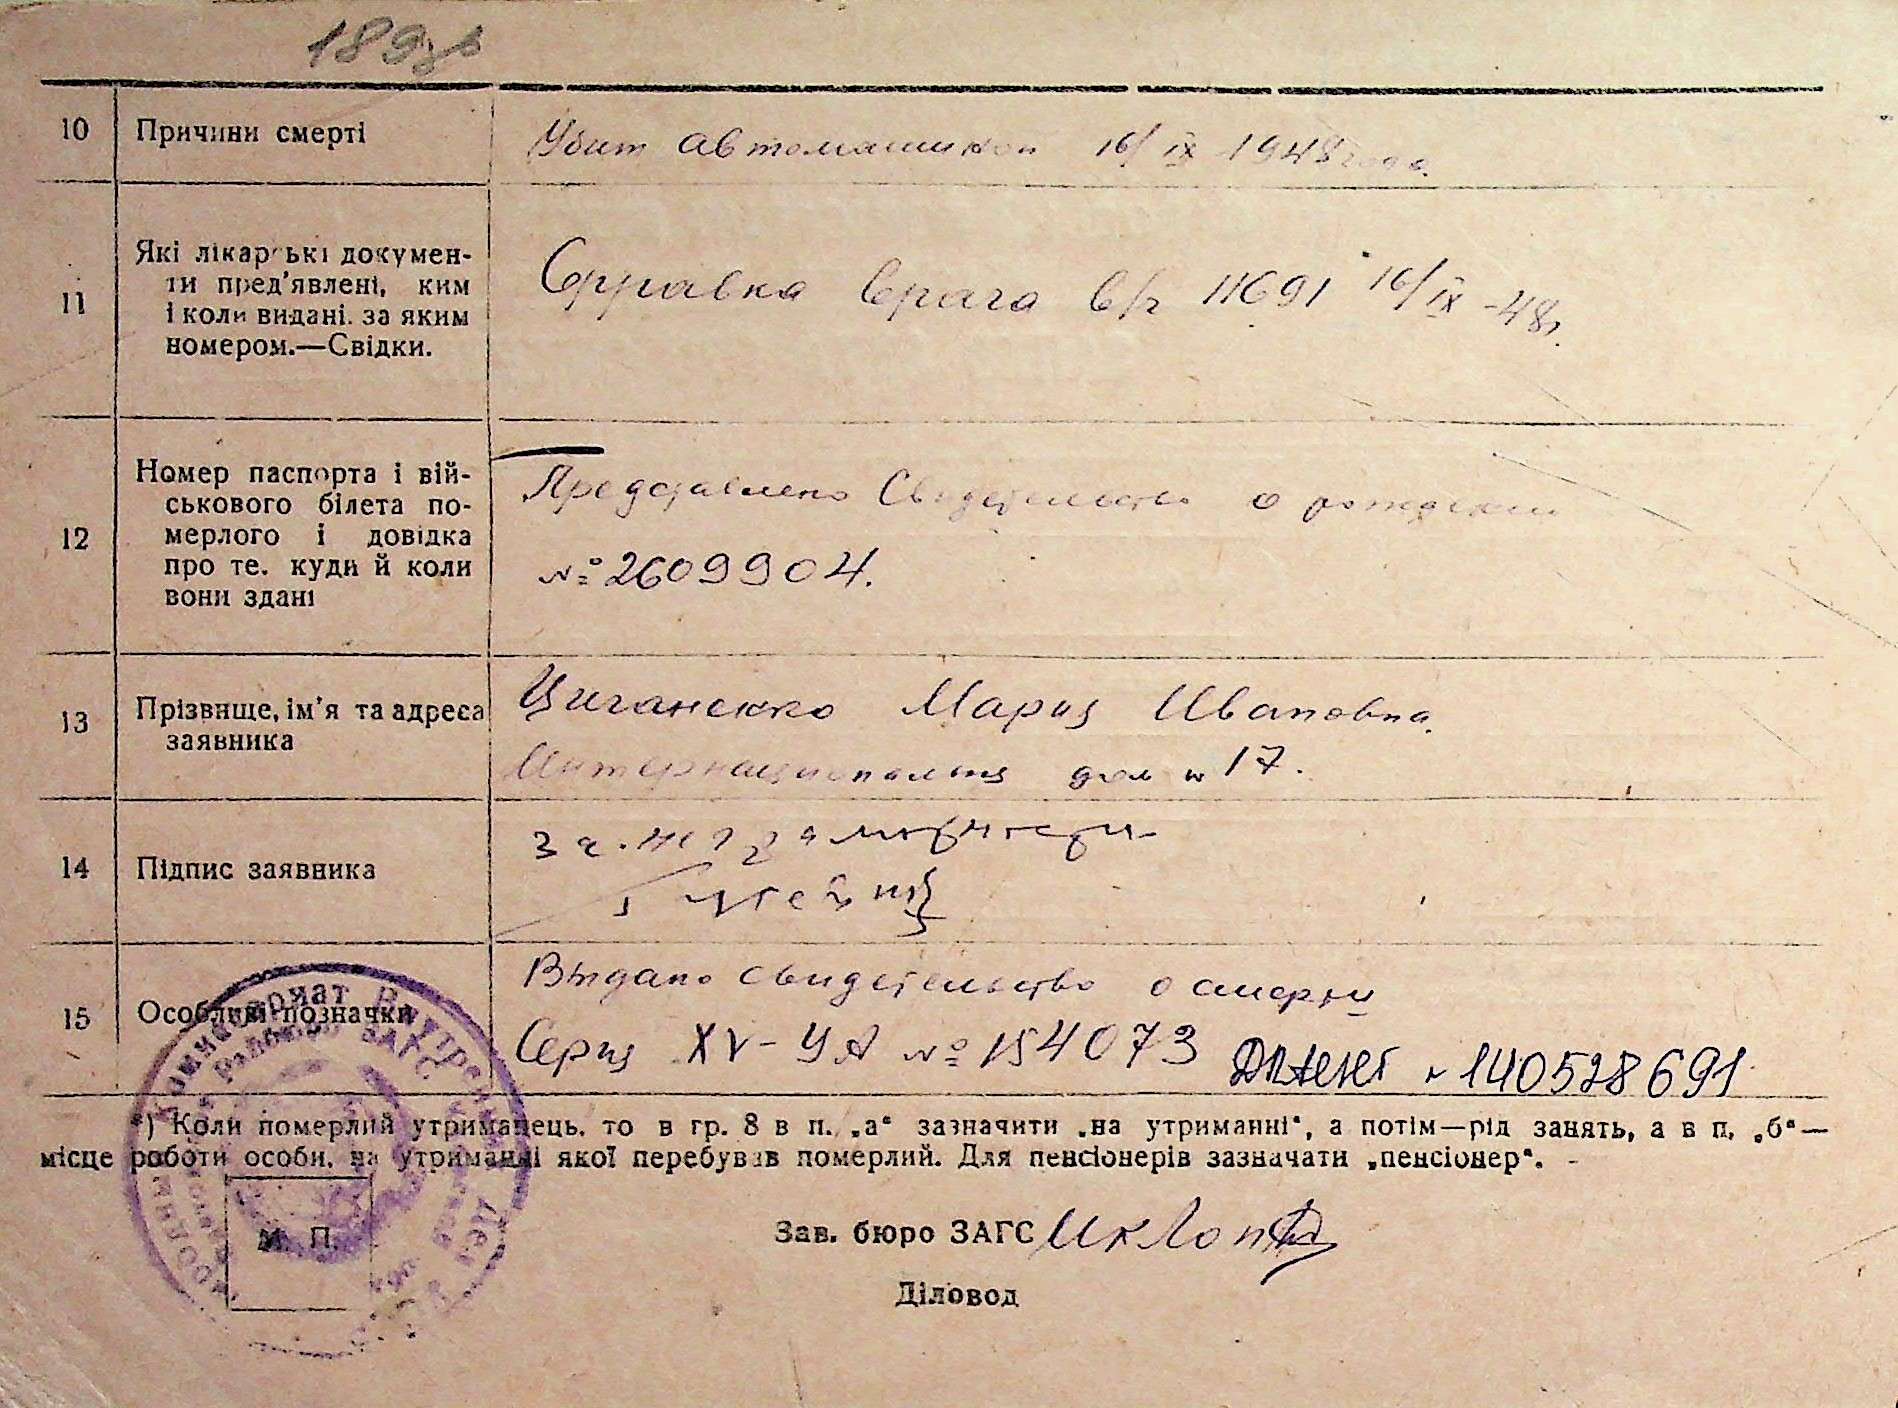 189
10 Причини смерті
Убит автомашиной 16/IX 1948 года.
11 Які лікарські докумен-
ти пред'явлені, ким
і коли видані. за яким
номером.—Свідки.
Справка врача в/ч 11691 16/IX -48г.
12 Номер паспорта і вій-
ськового білета по-
мерлого і довідка
про те. куди й коли
вони здані
Представлено Свидетельство о рождении
№ 2609904.
13 Прізвище, ім'я та адреса
заявника
Циганенко Мария Ивановна.
Интернациональная дом № 17.
14 Підпис заявника
За
15 Особливі позначки
Выдано свидетельство о смерти
Серия XV-УА № 154073 № 140528691
*) Коли померлий утриманець. то в гр. 8 в п. „а“ зазначити „на утриманні“, а потім—рід занять, а в п. „б“—
місце роботи особи. на утриманні якої перебував померлий. Для пенсіонерів зазначати „пенсіонер“.
М. П.
Зав. бюро ЗАГС
Діловод